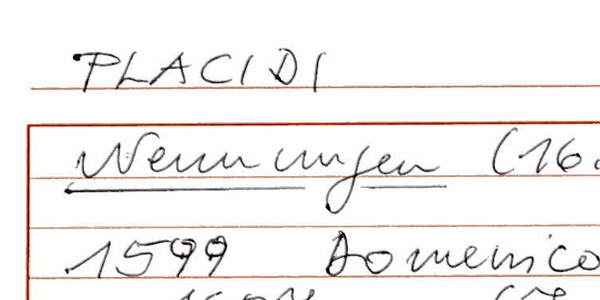 PLACIDI
Nennungen (16.
1599 Domenico